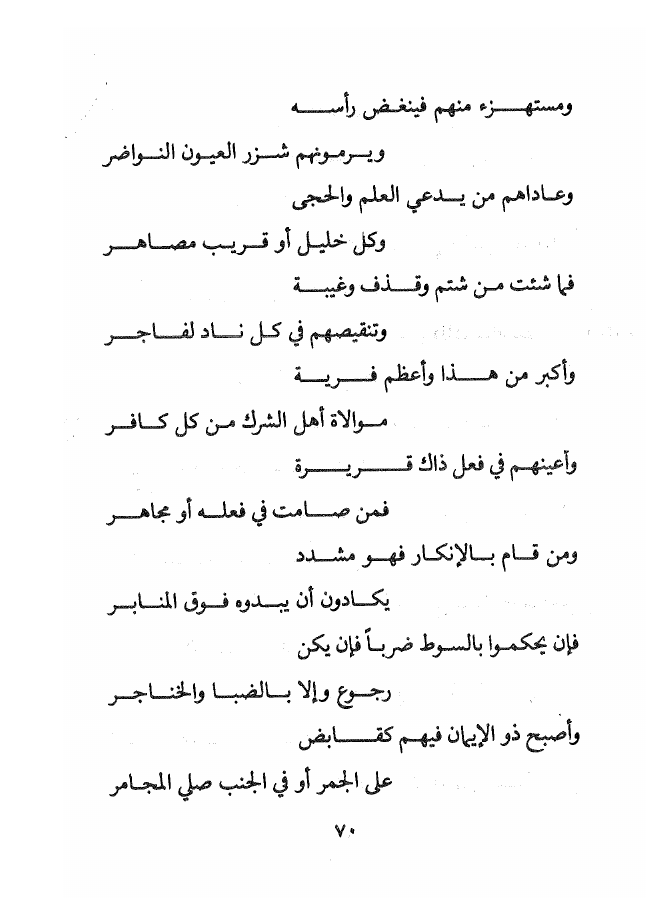 ومستهزء منهم فينغض رأسه
ويرمونهم شزر العيون النواضر
وعاداهم من يدعي العلم والحجى
وكل خليل أو قريب مصاهر
فما شئت من شتم وقذف وغيبة
وتنقيصهم في كل ناد لفاجر
وأكبر من هذا وأعظم فرية
موالاة أهل الشرك من كل كافر
وأعينهم في فعل ذاك قريرة
فمن صامت في فعله أو مجاهر
ومن قام بالإنكار فهو مشدد
يكادون أن يبدوه فوق المنابر
فإن يحكموا بالسوط ضرباً فإن يكن
رجوع وإلا بالضبا والخناجر
وأصبح ذو الإيمان فيهم كقابض
على الجمر أو في الجنب صلي المجامر
٧٠